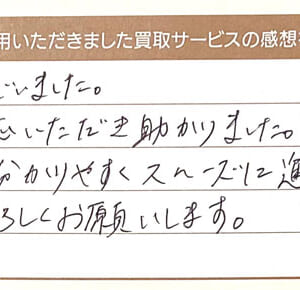 用いただきました買取サービスの感想
ざいました。
いただき助かりました。
分かりやすくスムーズに進
ろしくお願いします。